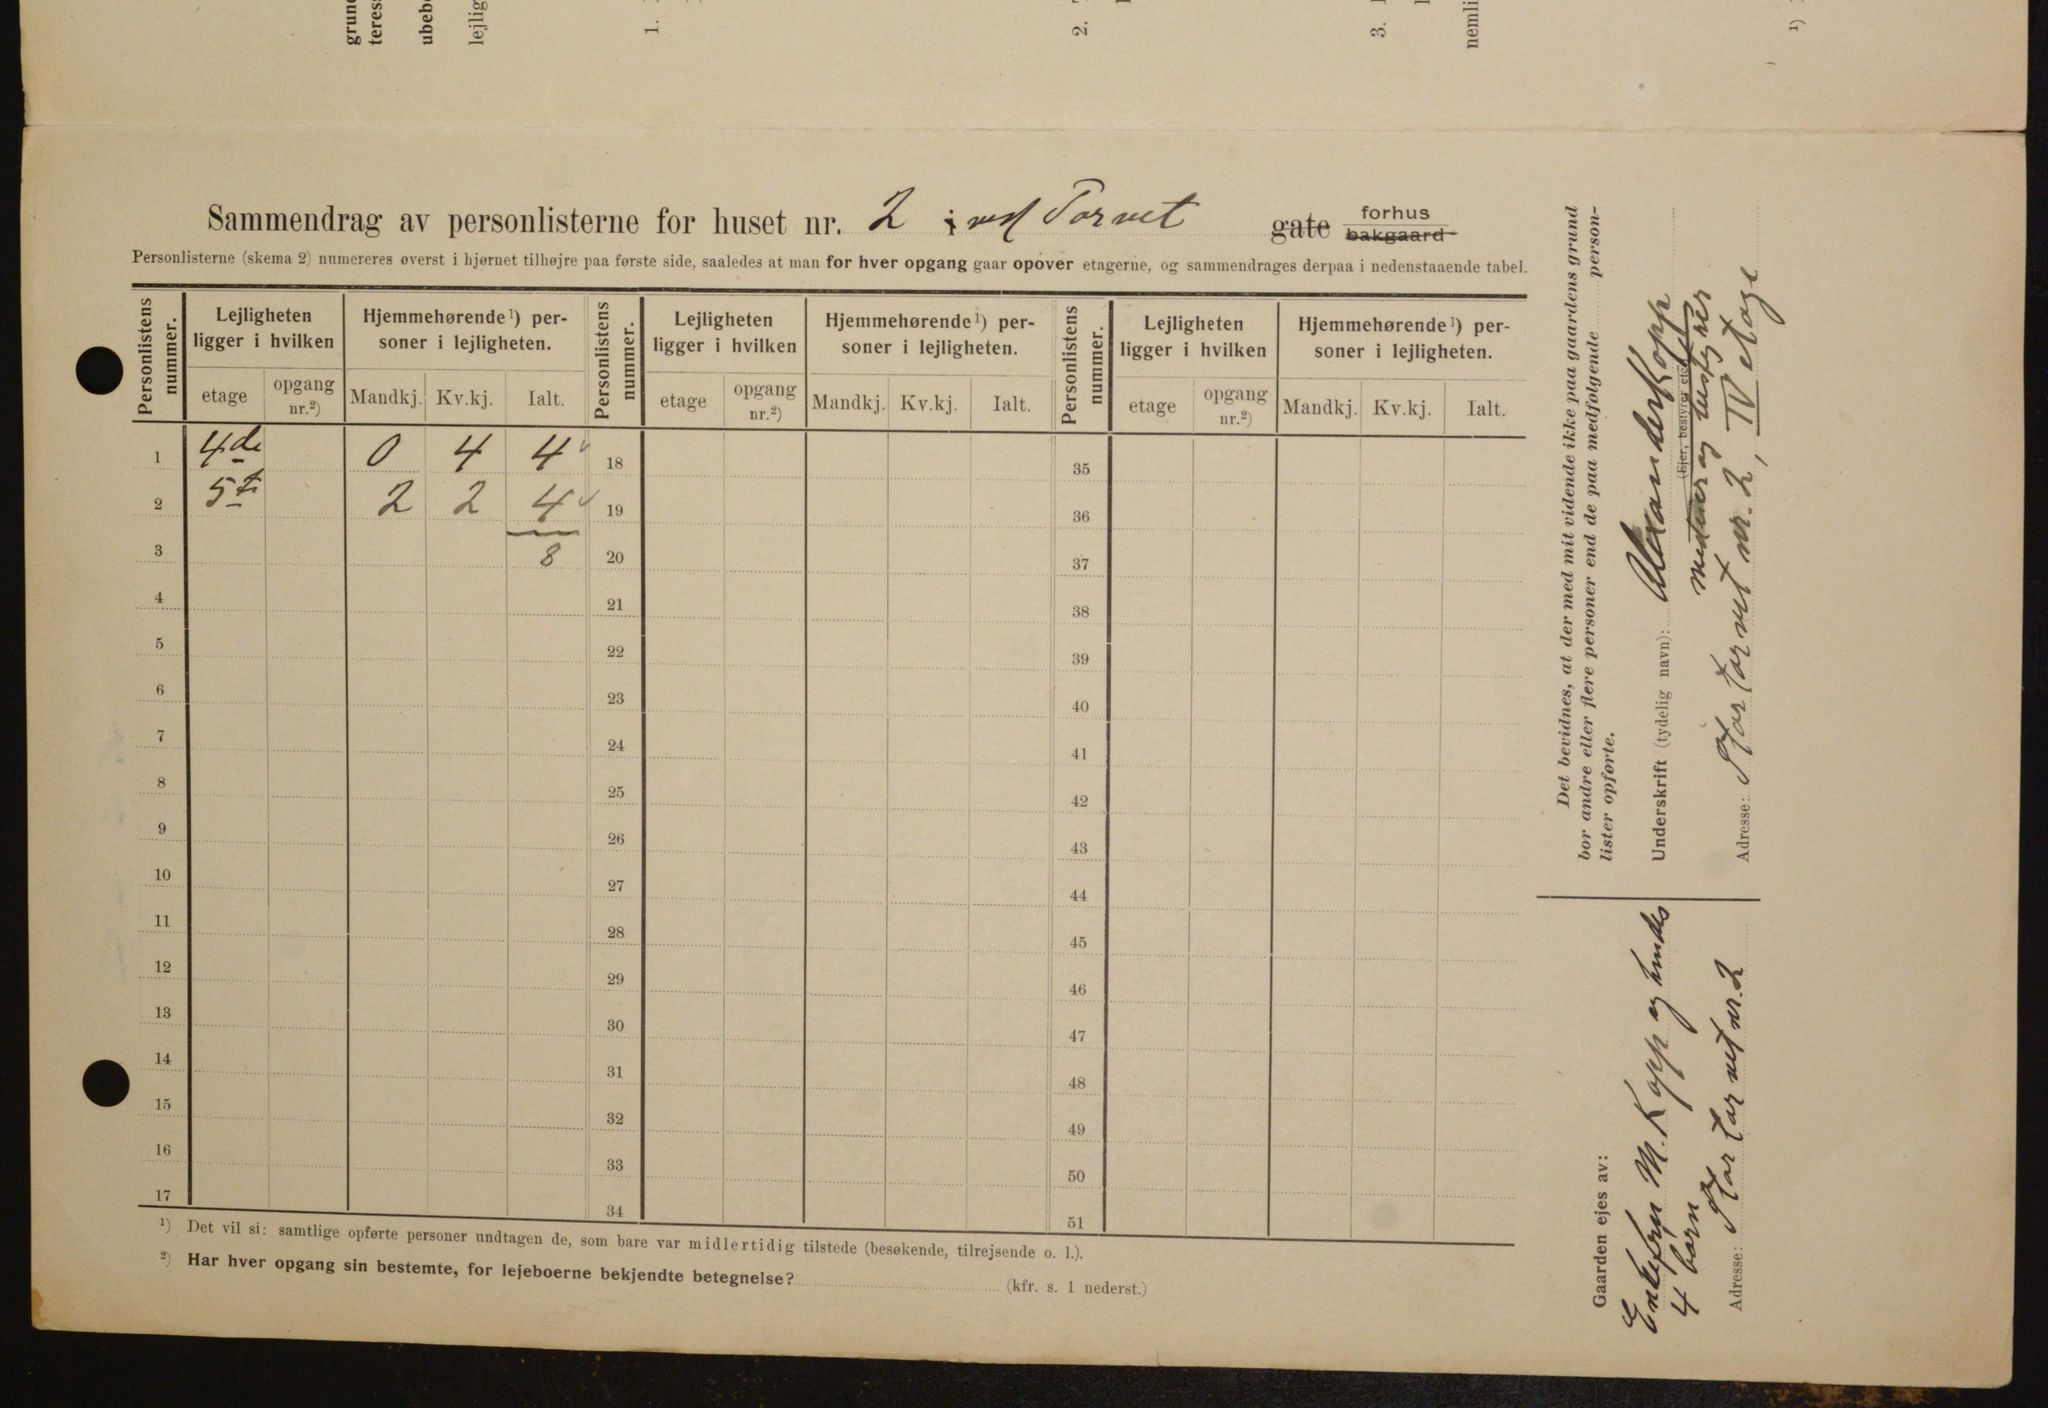 grun
teres
ubebo
lejlig
1.
2.
3.
nemli
1)
Sammendrag av personlisterne for huset nr. 2 i ved Torvet gate forhus bakgaard
Personlisterne (skema 2) numereres øverst i hjørnet tilhøjre paa første side, saaledes at man for hver opgang gaar opover etagerne, og sammendrages derpaa i nedenstaaende tabel.
Personlistens nummer. Lejligheten ligger i hvilken Hjemmehørende 1) personer i lejligheten. Personlistens nummer. Lejligheten ligger i hvilken Hjemmehørende 1) personer i lejligheten. Personlistens nummer. Lejligheten ligger i hvilken Hjemmehørende 1) personer i lejligheten.
etage opgang nr.2) Mandkj. Kv.kj. Ialt. etage opgang nr.2) Mandkj. Kv.kj. Ialt. etage opgang nr.2) Mandkj. Kv.kj. Ialt.
1 4de 0 4 4 18 35
2 5te 2 2 4 19 36
3 8 20 37
4 21 38
5 22 39
6 23 40
7 24 41
8 25 42
9 26 43
10 27 44
11 28 45
12 29 46
13 30 47
14 31 48
15 32 49
16 33 50
17 34 51
1) Det vil si: samtlige opførte personer undtagen de, som bare var midlertidig tilstede (besøkende, tilrejsende o. l.).
2) Har hver opgang sin bestemte, for lejeboerne bekjendte betegnelse? (kfr. s. 1 nederst.)
Det bevidnes, at der med mit vidende ikke paa gaardens grund
bor andre eller flere personer end de paa medfølgende person-
lister opførte.
Underskrift (tydelig navn): Alexander Kopp
(Ejer, bestyrer etc.)
medeier og bestyrer
Adresse: Stortorvet nr. 2, IV etage
Gaarden ejes av:
Enkefru M. Kopp og hendes
4 børn
Adresse: Stortorvet nr. 2